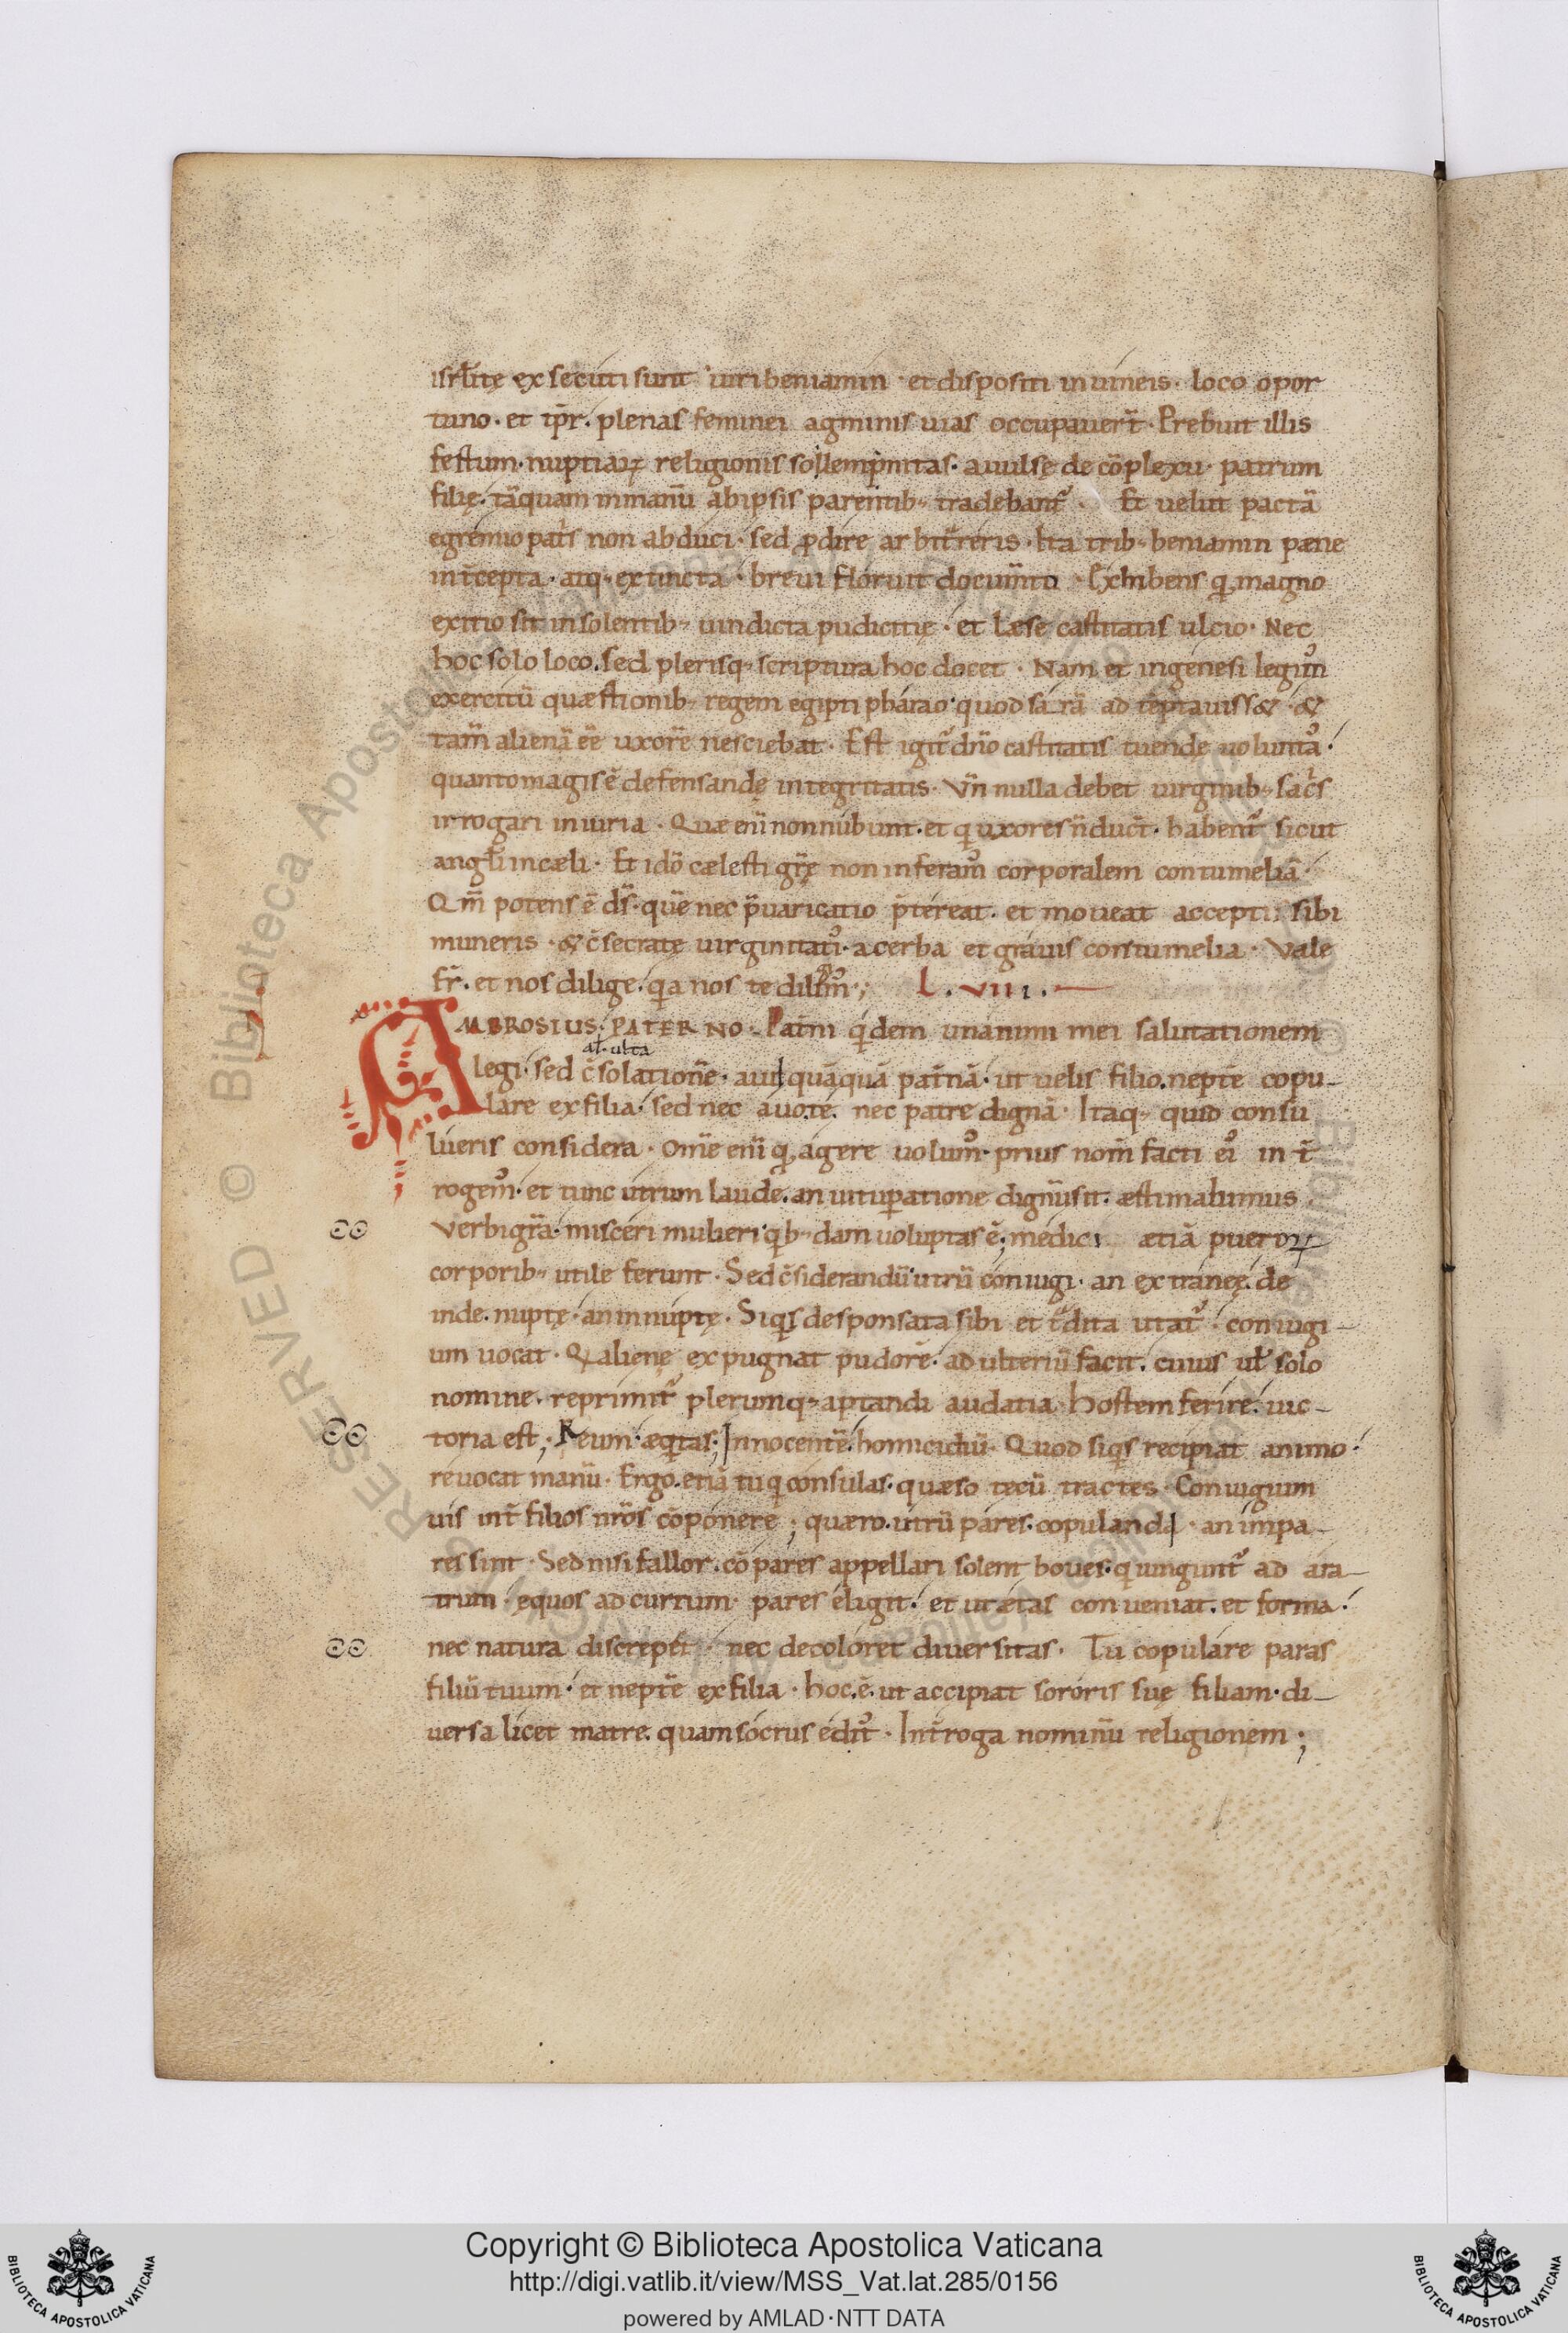 isrłitę exsecuti sunt uiri beniamin · et dispositi in uineis · loco opor
tuno · et ip̄r · plenas feminei agminis uias occupauer̄t · Prebuit illis
festum · nuptiaꝝ religionis sollempnitas · auulsę de cōplexu · patrum
filię · tāquam in manū ab ipsis parentib; tradebant᷑ · Et uelut pactā
egremio pat̄s non abduci · sed ꝓdire arbit̄reris · Ita trib; beniamin pæne
int̄cepta · atq; extincta · breui floruit docum̄to · Exhibens qđ magno
exitio sit insolentib; uindicta pudicitię · et læse castitatis ulcio · Nec
hoc solo loco · sed plerisq; scriptura hoc docet · Nam et in genesi legim᷒
exercitū quæstionib; regem egipti pharao · quod sarā adtēptauiss& · &
tam̄ alienā ēē uxorē nesciebat · Est igit᷑ dn̄o castitatis tuendę uolunta᷒ ·
quanto magis ē defensandę integritatis · Vn̄ nulla debet uirginib; sac̄s
irrogari iniuria · Quæ enī non nubunt · et q uxores n̄ duc̄t · habent᷑ sicut
angłi in cæli · Et idō cælesti gr̄ę non inferam᷒ corporalem contumeliā ·
Qm̄ potens ē ds̄ · quē nec p̄uaricatio p̄tereat · et moueat accepti sibi
muneris · & c̄secratę uirginitati᷒ · acerba et grauis contumelia · Vale
fr̄ · et nos dilige · q̄a nos te dilim᷒ ·; L · VIII ·
AMBROSIUS · PATERNO · Pat̄ni q̄dem unanimi mei salutationem
al · ulta
legi · sed c̄solationē · aui quāquā pat̄nā · ut uelis filio · neptē copu-
lare ex filia · sed nec auo te · nec patre dignā · Itaq; quid consu
lueris considera · Om̄e enī qđ agere uolum᷒ · prius nom̄ facti ei᷒ int̄
rogem᷒ · et tunc utrum laude · an uituꝑatione dignū sit · æstimabimus ·
Verbi gr̄a · misceri mulieri · q̄b;dam uoluptas ē; medici ætiā pueroꝝ
corporib; utile ferunt · Sed c̄siderandū utrū coniugi · an extraneę · de
inde · nuptę · an innuptę · Siq̄s desponsata sibi et t̄dita utat᷑ · coniugi-
um uocat · Q alienę expugnat pudorē · adulteriū facit · cuius uł solo
nomine · reprimit᷑ plerumq; aptandi audatia · Hostem ferire · uic-
toria est; Reum · æq̄tas; Innocentē · homicidiū · Quod siq̄s recipiat animo ·
reuocat manū · Ergo · etiā tu q consulas · quæso tecū tractes · Coniugium
uis int̄ filios nr̄os cōponere; quæro · utrū pares · copulandi · an impa-
res sint · Sed nisi fallor · cōpares appellari solent boues · q iungunt᷑ ad ara-
trum · equos ad currum · pares eligit · et ut ætas conueniat · et forma ·
nec natura discrepet · nec decoloret diuersitas · Tu copulare paras
filiū tuum · et neptē ex filia · hoc · ē · ut accipiat sororis suę filiam · di-
uersa licet matre · quam socrus edit᷒ · Int̄roga nominū religionem;
RESERVED © Biblioteca Apostolica
Copyright © Biblioteca Apostolica Vaticana
http://digi.vatlib.it/view/MSS_Vat.lat.285/0156
powered by AMLAD·NTT DATA
BIBLIOTECA APOSTOLICA VATICANA
BIBLIOTECA APOSTOLICA VATICANA